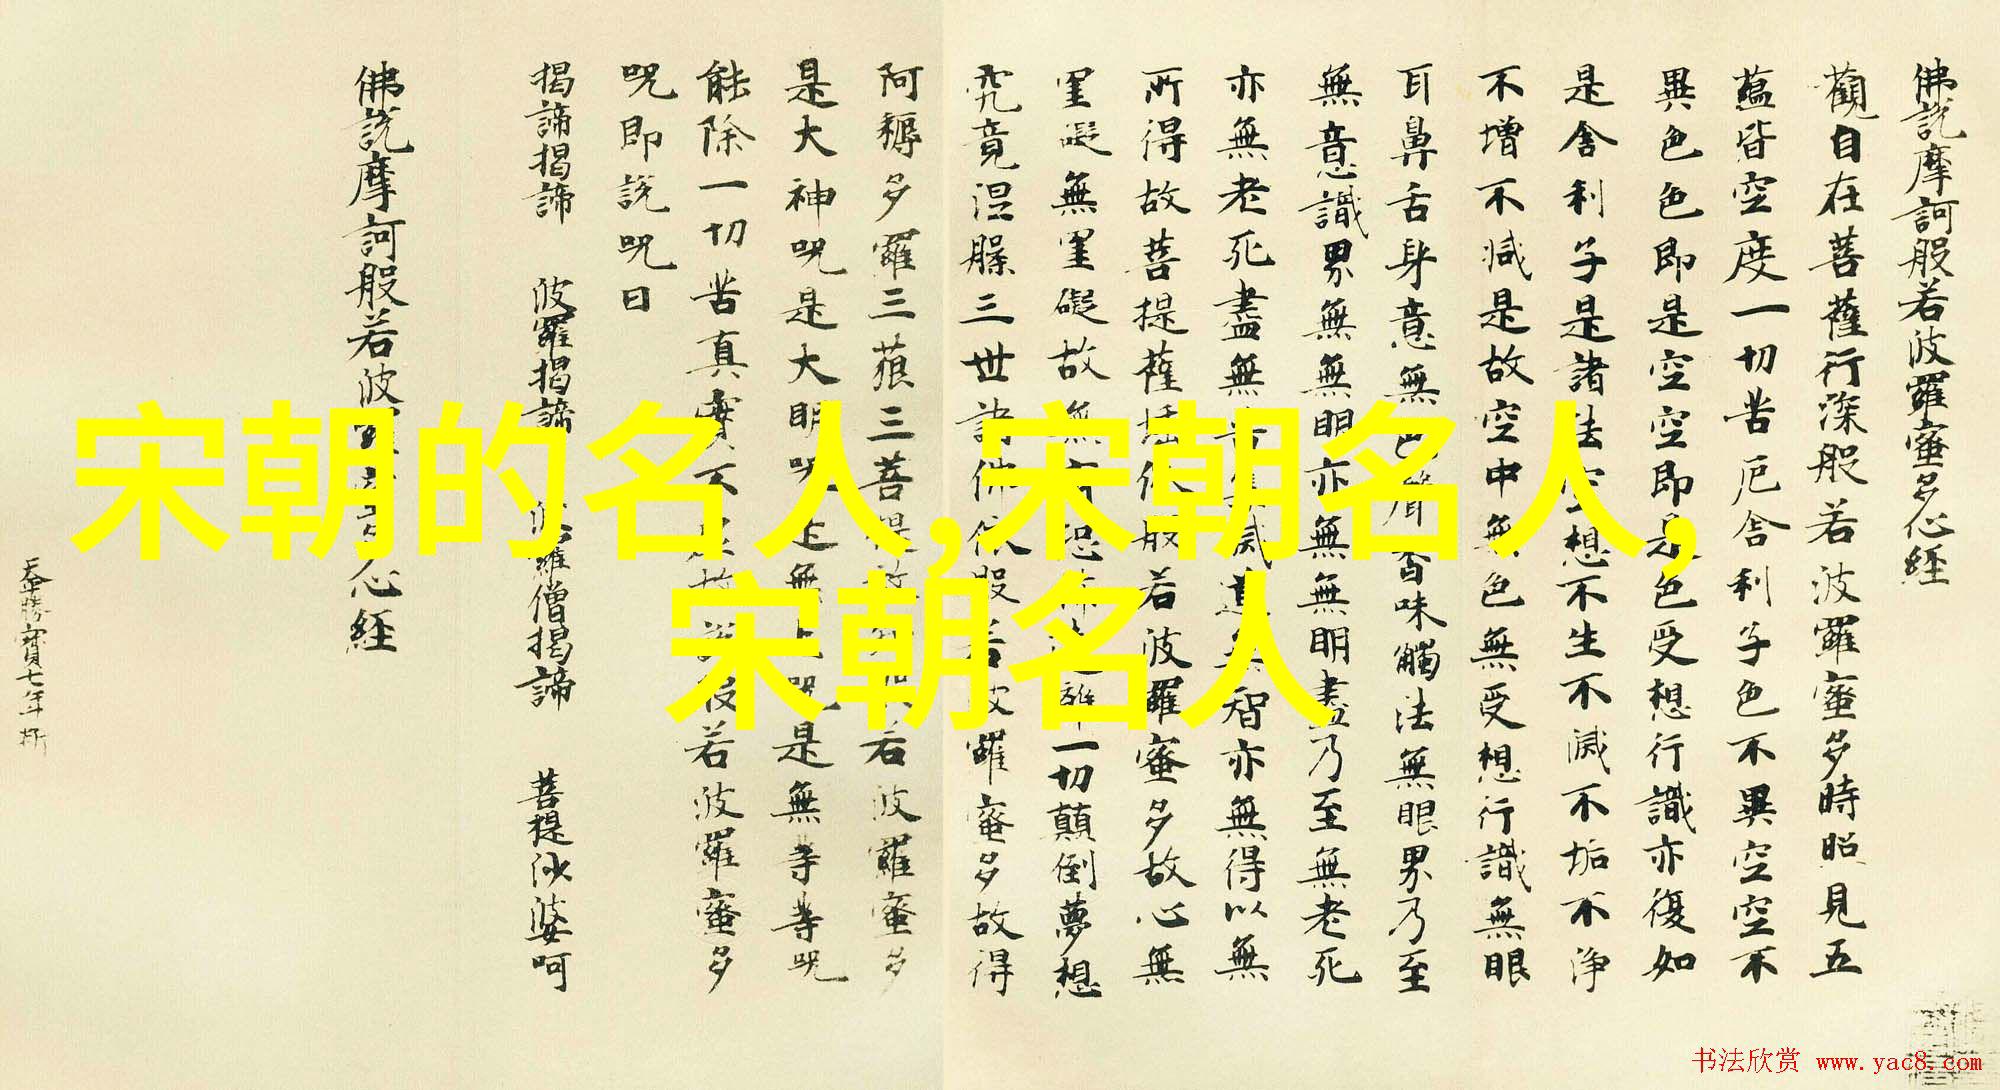 佛說摩訶般若波羅蜜多心經
觀自在菩薩行深般若波羅蜜多時照見五
蘊皆空度一切苦厄舍利子色不異空空不
異色色即是空空即是色受想行識亦復如
是舍利子是諸法空想不生不滅不垢不淨
不增不減是故空中無色無受想行識無眼
耳鼻舌身意無色聲香味觸法無眼界乃至
無意識界無無明亦無無明盡乃至無老死
亦無老死盡無苦集滅道無智亦無得以無
所得故菩提薩埵依般若波羅蜜多故心無
罣礙無罣礙故無有恐怖遠離一切顛倒夢想
究竟涅槃三世諸佛依般若波羅蜜多故得
阿耨多羅三藐三菩提故知般若波羅蜜多
是大神咒是大明咒是無上咒是無等等咒
能除一切苦真實不虛故說般若波羅蜜多
咒即說咒曰
揭諦揭諦 波羅揭諦 波羅僧揭諦 菩提沙婆呵
佛說摩訶般若波羅蜜多心經
勝寶七年
宋朝的名人,宋朝名人,
宋朝名人
书法欣赏 www.yac8.com